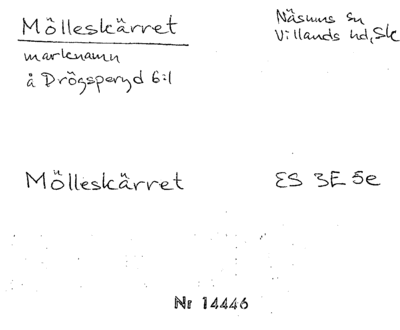 Mölleskärret
Näsums sn
Villands hd, Sk
marknamn
å Drögsperyd 6:1
Mölleskärret
ES 3E 5e
Nr 14446